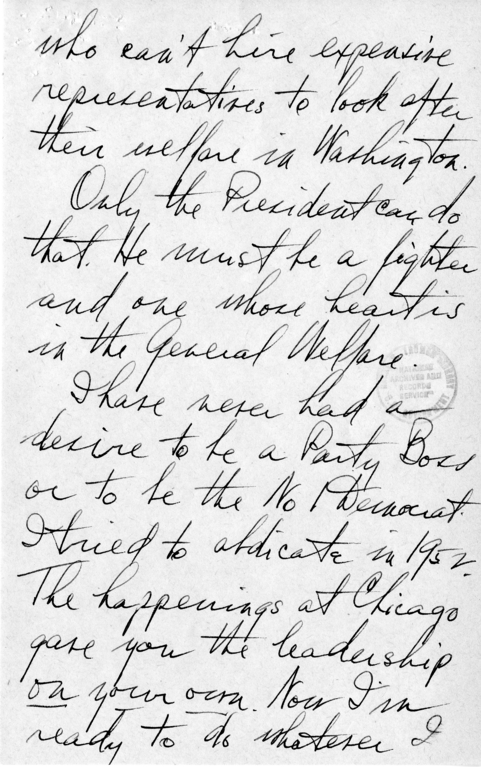 who can't hire expensive
representatives to look after
their welfare in Washington.
Only the President can do
that. He must be a fighter
and one whose heart is
in the General Welfare.
I have never had a
desire to be a Party Boss
or to be the No 1 Democrat.
I tried to abdicate in 1952.
The happenings at Chicago
gave you the leadership
on your own. Now I'm
ready to do whatever I